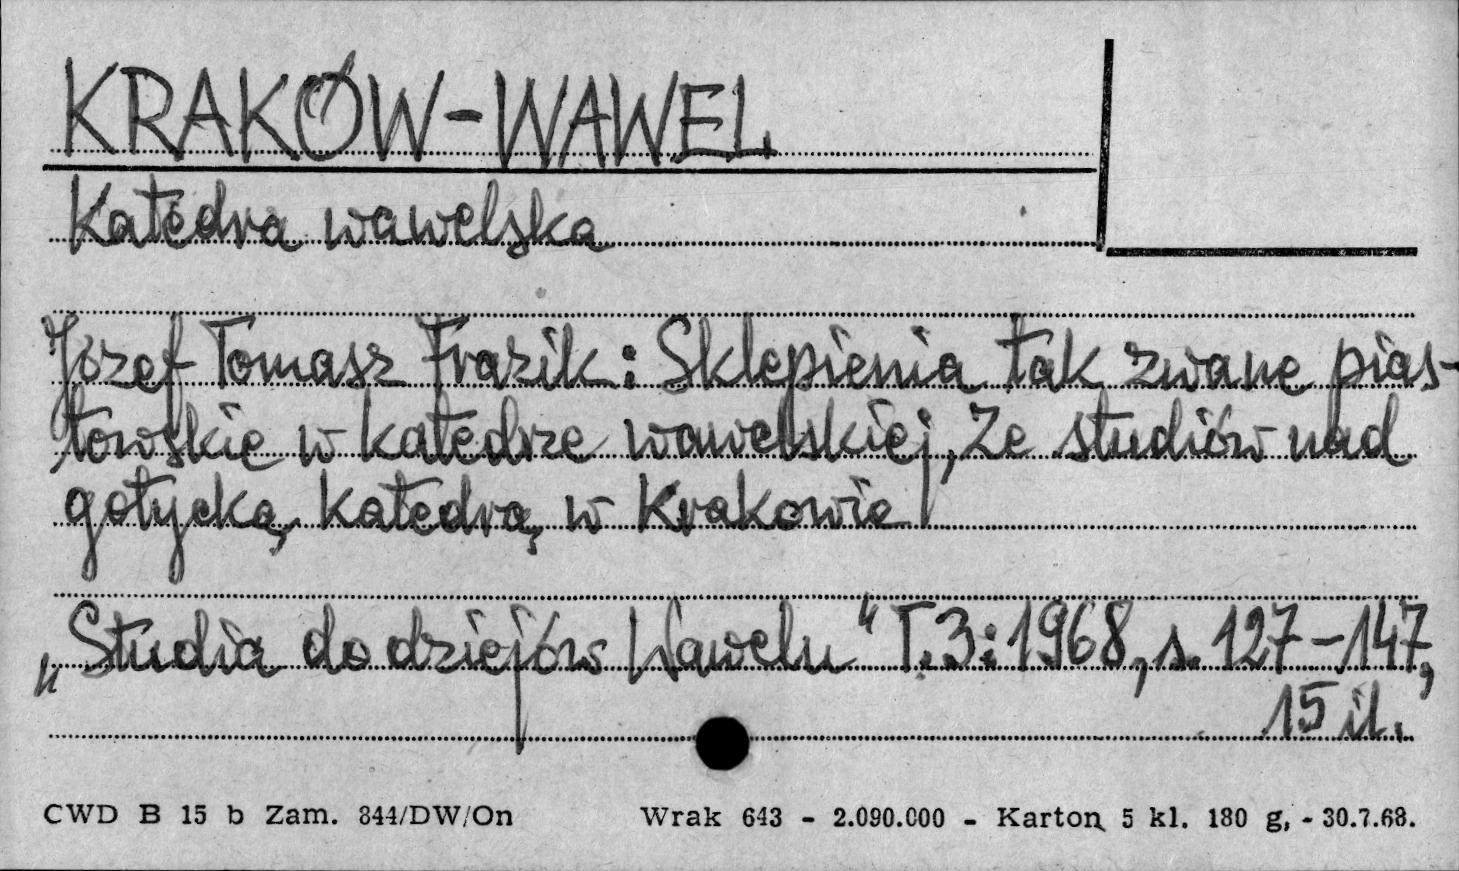 KRAKÓW-WAWEL
Katedra wawelska
Józef Tomasz Frazik: Sklepienia tak zwane pias-
towskie w katedrze wawelskiej, Ze studiów nad
gotycką katedrą w Krakowie
„Studia do dziejów Wawelu" T.3:1968, s. 127-147,
15 il.
CWD B 15 b Zam. 344/DW/On Wrak 643 - 2.090.000 - Karton 5 kl. 180 g, - 30.7.68.